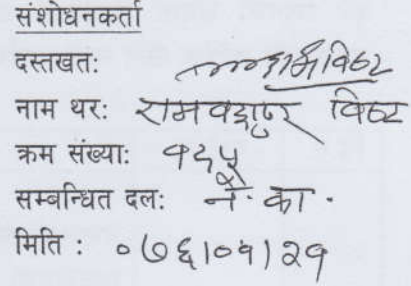 संशोधनकर्ता
दस्तखत:
नाम थर: रामवहादुर विष्ट
क्रम संख्या: १८५
सम्बन्धित दल: ने. का.
मिति : ०७६।०१।२१